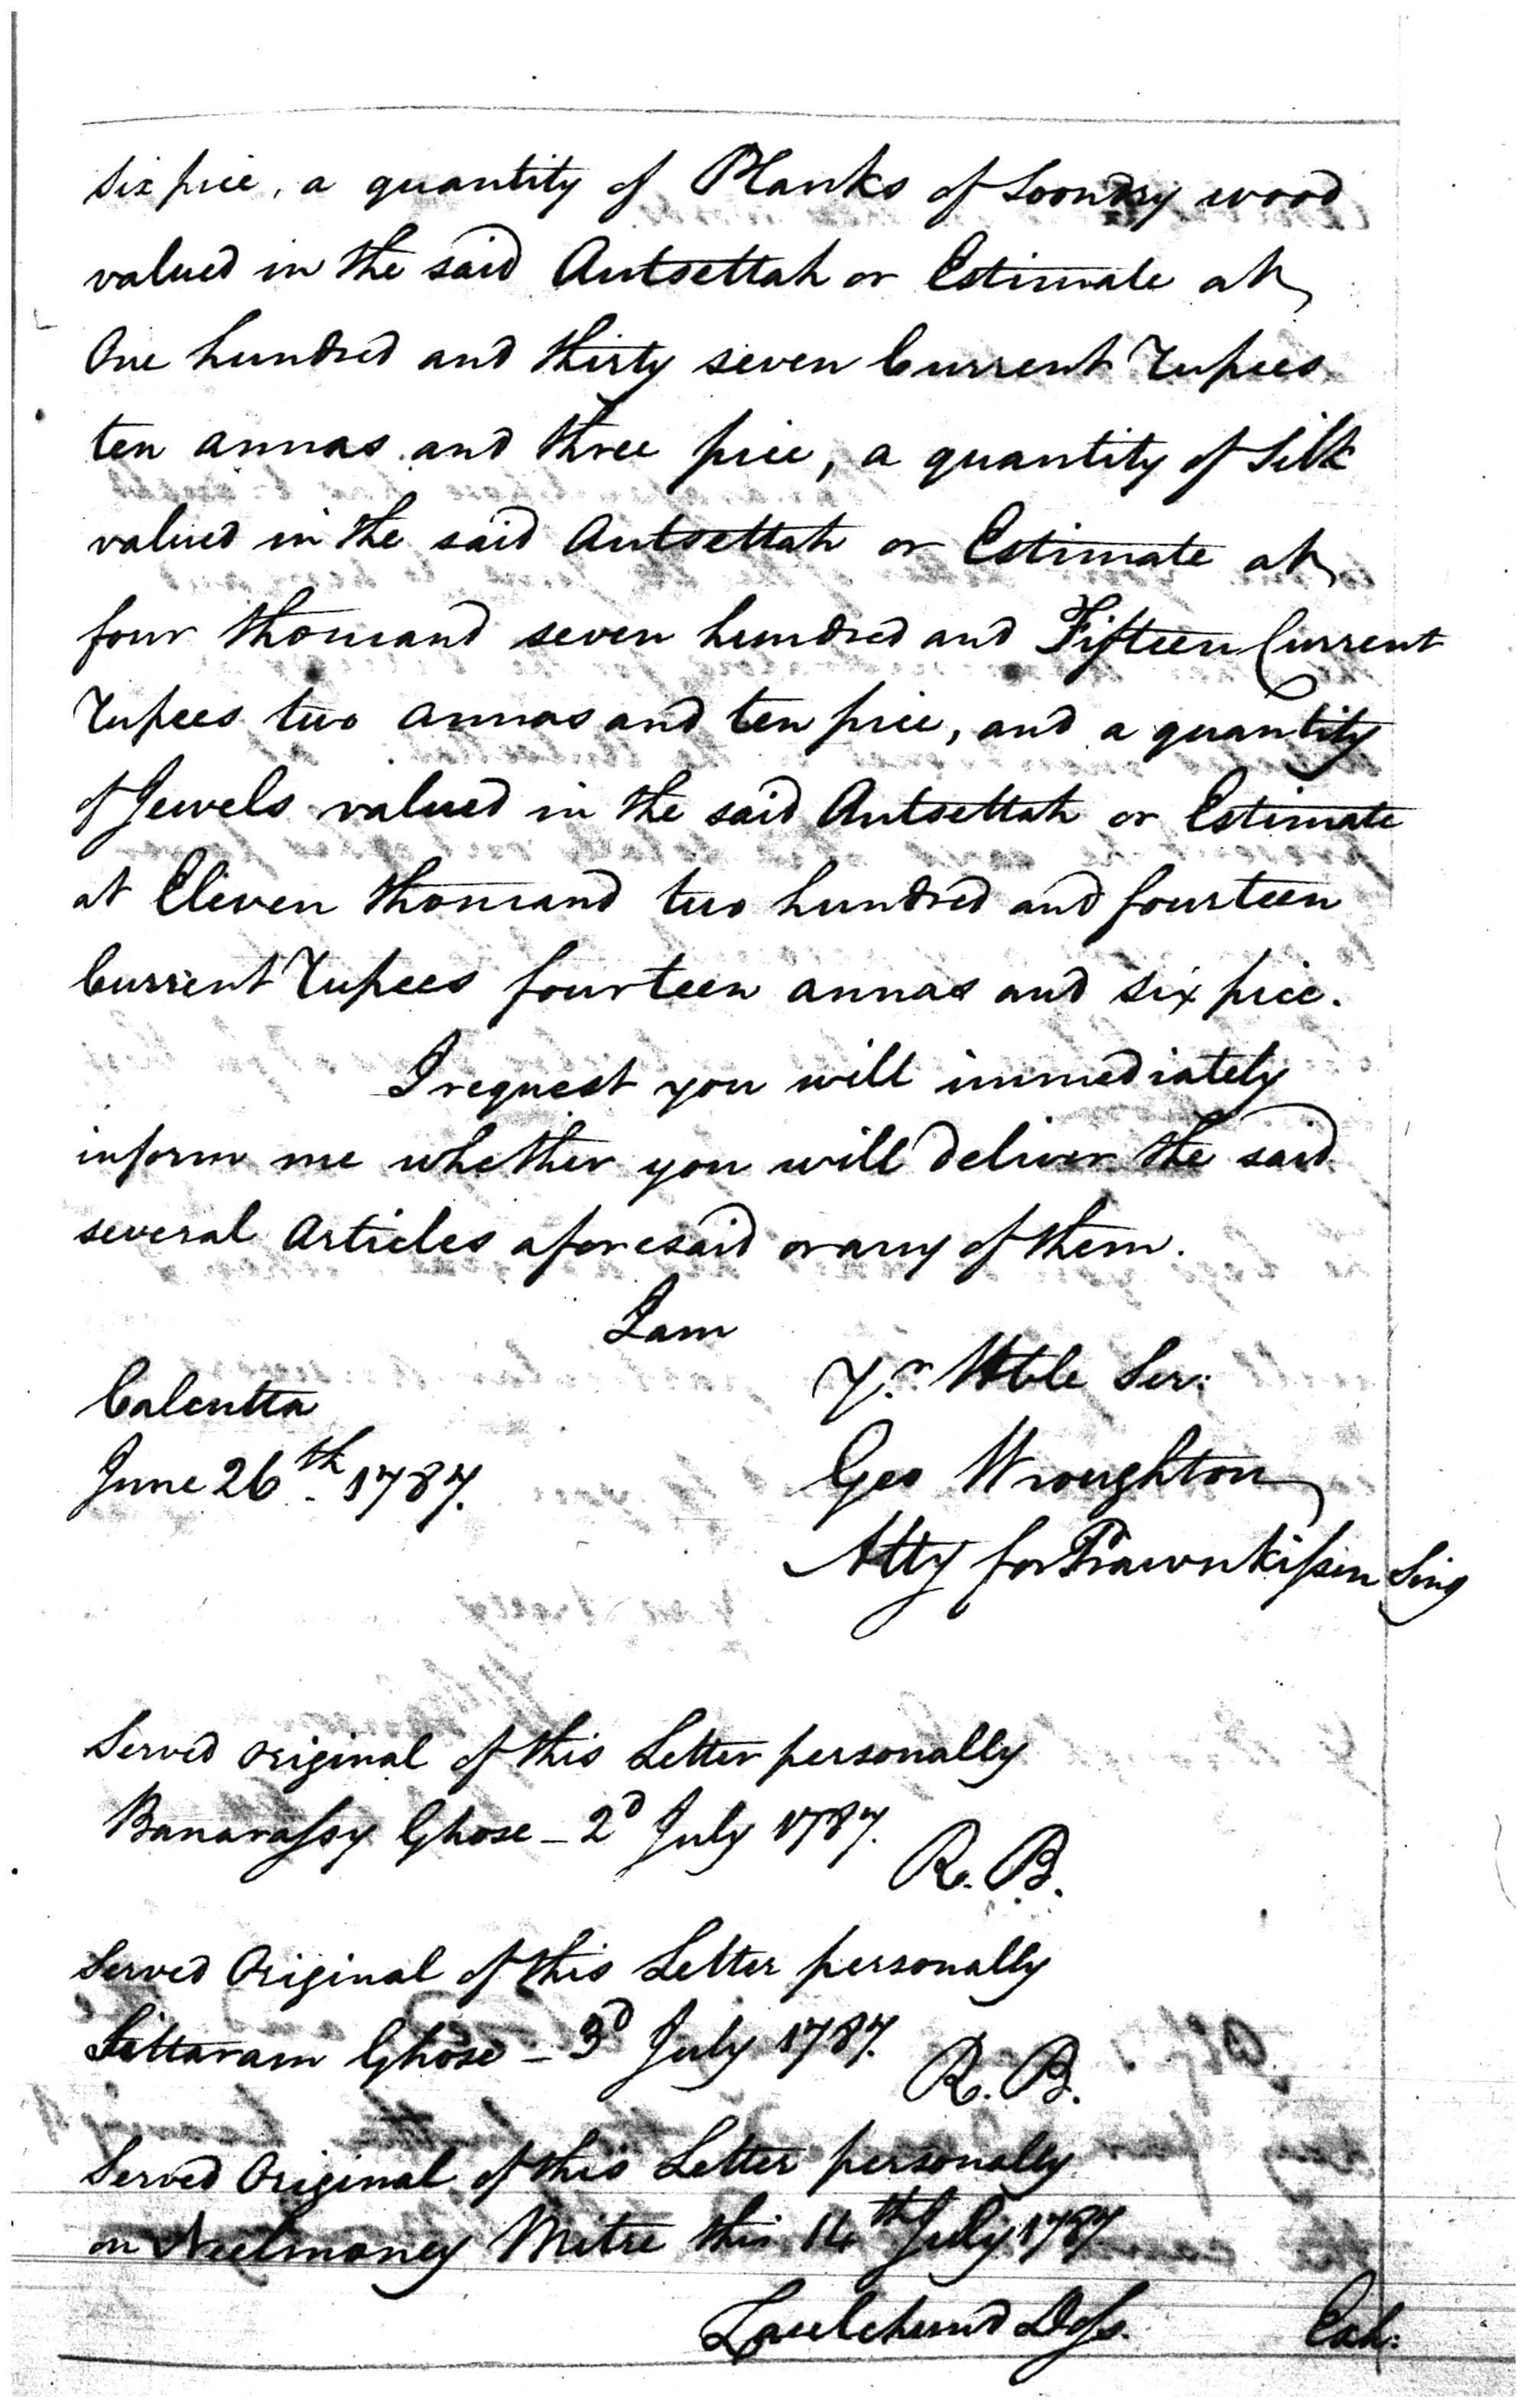 six pice, a quantity of Planks of Soondry wood
valued in the said Autsettah or Estimate at
One hundred and thirty seven Current Rupees
ten annas and three pice, a quantity of Silk
valued in the said Autsettah or Estimate at
four thousand seven hundred and Fifteen Current
Rupees two annas and ten pice, and a quantity
of Jewels valued in the said Autsettah or Estimate
at Eleven thousand two hundred and fourteen
Current Rupees fourteen annas and six pice.
I request you will immediately
inform me whether you will deliver the said
several Articles aforesaid or any of them.
I am
Yr. Hble Ser:
Calcutta
June 26th. 1787.
Geo Wroughton
Atty for Prawnkissen Sing
Served original of this Letter personally
Banarassy Ghose - 2d July 1787.
R. B.
Served Original of this Letter personally
Sittaram Ghose - 3d July 1787.
R. B.
Served Original of this Letter personally
on Neelmoney Mitre this 14th July 1787
Laulchund Doss.